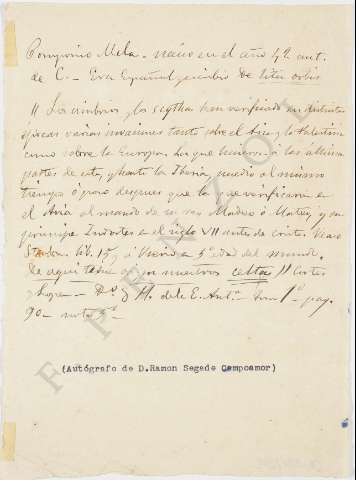 Pomponio Mela. nació en el año 42 ant.
de C. - Era Español, escribió De situ orbis
" Los cimbrios y los scythas han verificado en distintas
épocas varias invasiones tanto sobre el Asia y la Palestina
como sobre la Europa. La que hicieron á las últimas
partes de esta, y hasta la Iberia, sucedió al mismo
tiempo ó poco despues que la que verificaron en
el Asia al mando de su rey Madies ó Matys y su
principe en el siglo VII ante de cristo. Vease
Strabon. lib. 15, y á en 5ª edad del mundo.
De aqui nuestros celtas " Cortes
y Lopez - D. de la E. Ant. tom 1º pag.
90 - nota 5ª
F. PENZOL
(Autógrafo de D. Ramon Segade Campoamor)